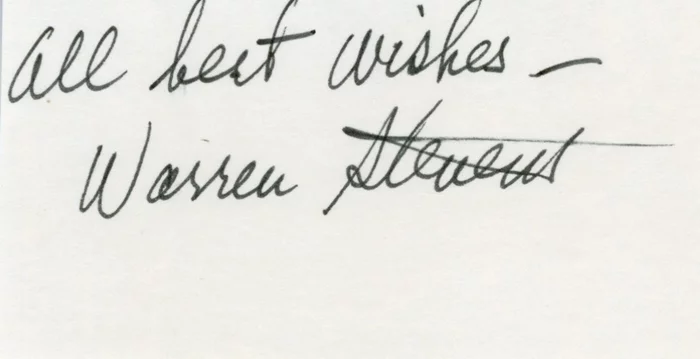 All best wishes –
Warren Stevens